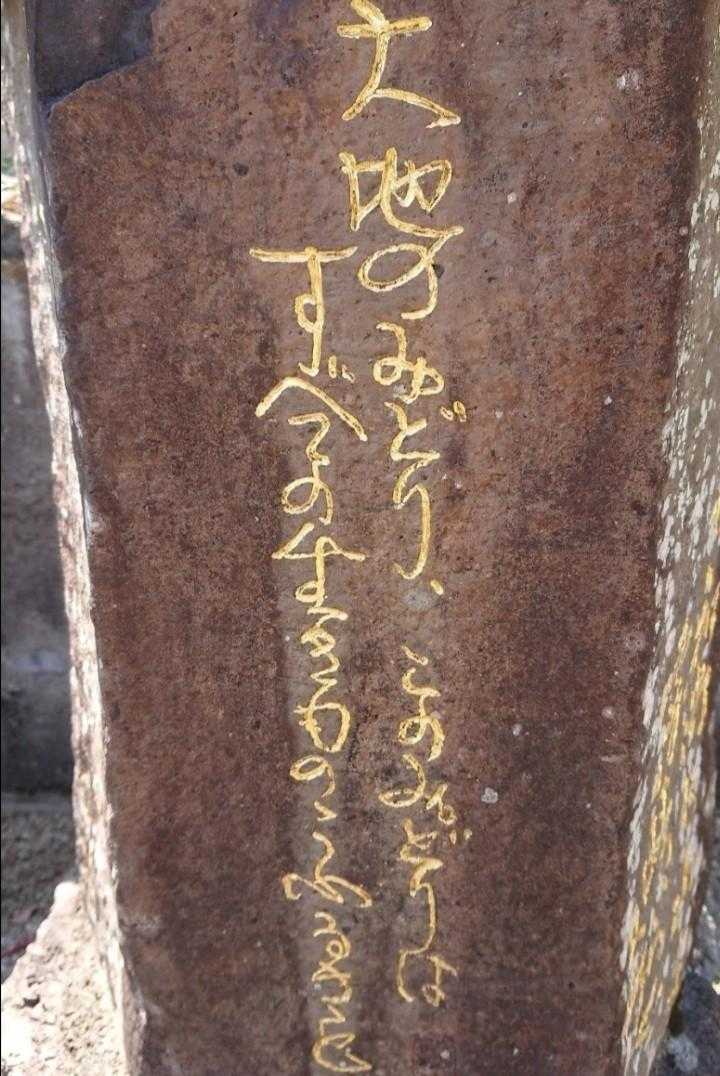 大地のみどり、このみどりは
すべての生きもの